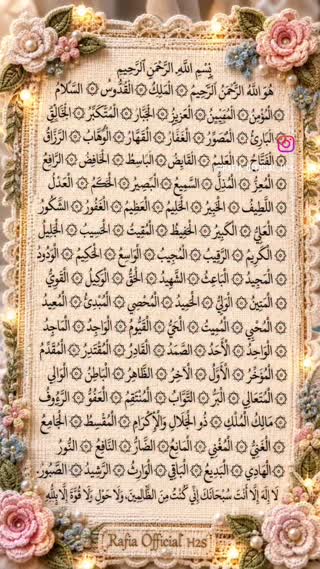 بِسْمِ اللَّهِ الرَّحْمَنِ الرَّحِيمِ
هُوَ اللَّهُ الرَّحْمَنُ الرَّحِيمُ ۞ الْمَلِكُ ۞ الْقُدُّوسُ ۞ السَّلَامُ
۞ الْمُؤْمِنُ ۞ الْمُهَيْمِنُ ۞ الْعَزِيزُ ۞ الْجَبَّارُ ۞ الْمُتَكَبِّرُ ۞ الْخَالِقُ
۞ الْبَارِئُ ۞ الْمُصَوِّرُ ۞ الْغَفَّارُ ۞ الْقَهَّارُ ۞ الْوَهَّابُ ۞ الرَّزَّاقُ
۞ الْفَتَّاحُ ۞ الْعَلِيمُ ۞ الْقَابِضُ ۞ الْبَاسِطُ ۞ الْخَافِضُ ۞ الرَّافِعُ
۞ الْمُعِزُّ ۞ الْمُذِلُّ ۞ السَّمِيعُ ۞ الْبَصِيرُ ۞ الْحَكَمُ ۞ الْعَدْلُ
۞ اللَّطِيفُ ۞ الْخَبِيرُ ۞ الْحَلِيمُ ۞ الْعَظِيمُ ۞ الْغَفُورُ ۞ الشَّكُورُ
۞ الْعَلِيُّ ۞ الْكَبِيرُ ۞ الْحَفِيظُ ۞ الْمُقِيتُ ۞ الْحَسِيبُ ۞ الْجَلِيلُ
۞ الْكَرِيمُ ۞ الرَّقِيبُ ۞ الْمُجِيبُ ۞ الْوَاسِعُ ۞ الْحَكِيمُ ۞ الْوَدُودُ
۞ الْمَجِيدُ ۞ الْبَاعِثُ ۞ الشَّهِيدُ ۞ الْحَقُّ ۞ الْوَكِيلُ ۞ الْقَوِيُّ
۞ الْمَتِينُ ۞ الْوَلِيُّ ۞ الْحَمِيدُ ۞ الْمُحْصِي ۞ الْمُبْدِئُ ۞ الْمُعِيدُ
۞ الْمُحْيِي ۞ الْمُمِيتُ ۞ الْحَيُّ ۞ الْقَيُّومُ ۞ الْوَاجِدُ ۞ الْمَاجِدُ
۞ الْوَاحِدُ ۞ الْأَحَدُ ۞ الصَّمَدُ ۞ الْقَادِرُ ۞ الْمُقْتَدِرُ ۞ الْمُقَدِّمُ
۞ الْمُؤَخِّرُ ۞ الْأَوَّلُ ۞ الْآخِرُ ۞ الظَّاهِرُ ۞ الْبَاطِنُ ۞ الْوَالِي
۞ الْمُتَعَالِي ۞ الْبَرُّ ۞ التَّوَّابُ ۞ الْمُنْتَقِمُ ۞ الْعَفُوُّ ۞ الرَّؤُوفُ
۞ مَالِكُ الْمُلْكِ ۞ ذُو الْجَلَالِ وَالْإِكْرَامِ ۞ الْمُقْسِطُ ۞ الْجَامِعُ
۞ الْغَنِيُّ ۞ الْمُغْنِي ۞ الْمَانِعُ ۞ الضَّارُّ ۞ النَّافِعُ ۞ النُّورُ
۞ الْهَادِي ۞ الْبَدِيعُ ۞ الْبَاقِي ۞ الْوَارِثُ ۞ الرَّشِيدُ ۞ الصَّبُورُ.
لَا إِلَهَ إِلَّا أَنْتَ سُبْحَانَكَ إِنِّي كُنْتُ مِنَ الظَّالِمِينَ، وَلَا حَوْلَ وَلَا قُوَّةَ إِلَّا بِاللَّهِ
Rafia Official H2S